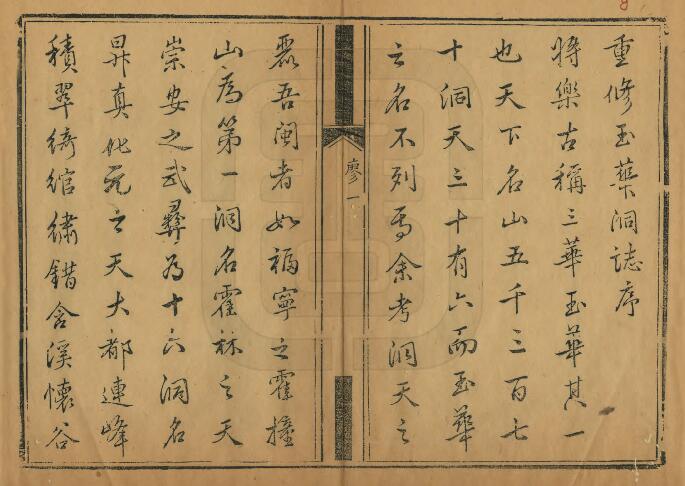 重修玉華洞誌序
將樂古稱三華玉華其一
也天下名山五千三百七
十洞天三十有六而玉華
之名不列焉余考洞天之
廖一
麗吾閩者如福寧之霍童
山為第一洞名霍林之天
崇安之武彞為十六洞名
昇真化元之天大都連峰
積翠綺綰繡錯含溪懷谷